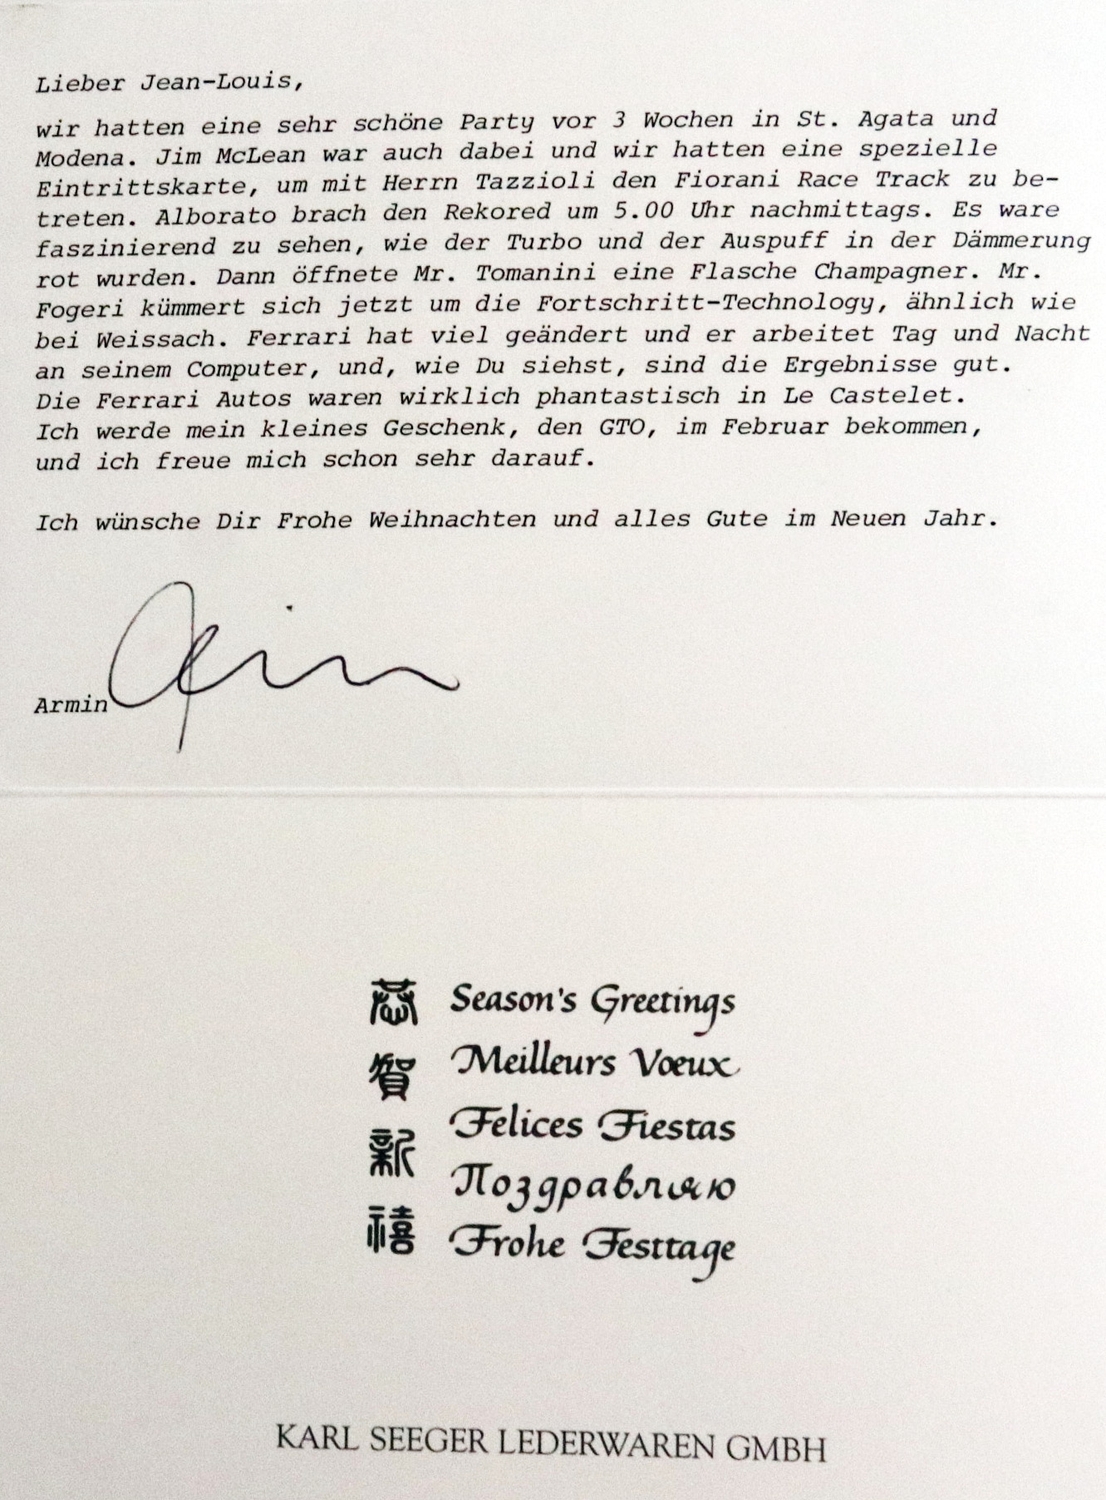 Lieber Jean-Louis,
wir hatten eine sehr schöne Party vor 3 Wochen in St. Agata und
Modena. Jim McLean war auch dabei und wir hatten eine spezielle
Eintrittskarte, um mit Herrn Tazzioli den Fiorani Race Track zu be-
treten. Alborato brach den Rekored um 5.00 Uhr nachmittags. Es ware
faszinierend zu sehen, wie der Turbo und der Auspuff in der Dämmerung
rot wurden. Dann öffnete Mr. Tomanini eine Flasche Champagner. Mr.
Fogeri kümmert sich jetzt um die Fortschritt-Technology, ähnlich wie
bei Weissach. Ferrari hat viel geändert und er arbeitet Tag und Nacht
an seinem Computer, und, wie Du siehst, sind die Ergebnisse gut.
Die Ferrari Autos waren wirklich phantastisch in Le Castelet.
Ich werde mein kleines Geschenk, den GTO, im Februar bekommen,
und ich freue mich schon sehr darauf.
Ich wünsche Dir Frohe Weihnachten und alles Gute im Neuen Jahr.
Armin
Armin
恭賀新禧
Season's Greetings
Meilleurs Vœux
Felices Fiestas
Поздравляю
Frohe Festtage
KARL SEEGER LEDERWAREN GMBH